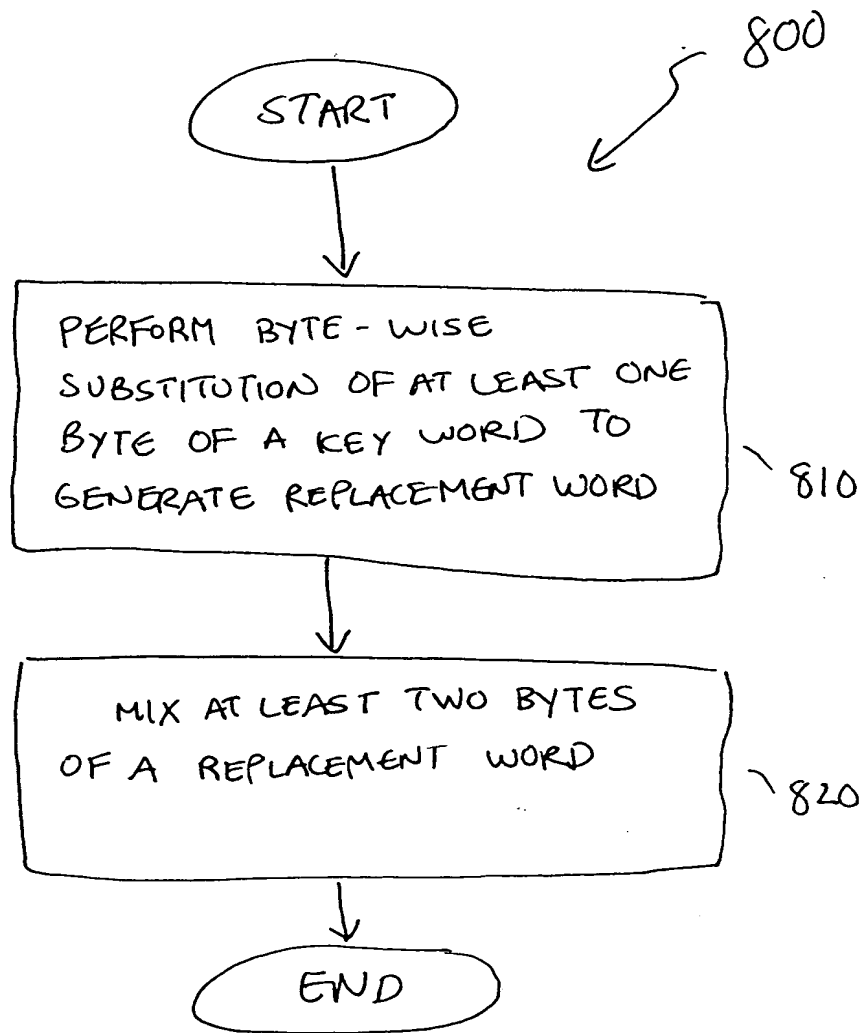 800
START
PERFORM BYTE-WISE
SUBSTITUTION OF AT LEAST ONE
BYTE OF A KEY WORD TO
GENERATE REPLACEMENT WORD
810
MIX AT LEAST TWO BYTES
OF A REPLACEMENT WORD
820
END